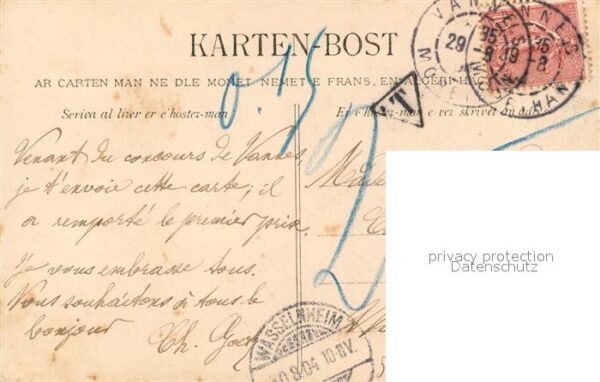 KARTEN-BOST
AR CARTEN MAN NE DLE MONET NEMET E FRANS, EN ALGERI HE
Scriva al liver er c'hostez-man
Er c'hostez-man e vez skrivet an adres
VANNES
29 8
T
0.15
2
Venant du concours de Vannes,
je t'envoie cette carte; il
a remporté le premier prix.
Je vous embrasse tous.
Nous souhaitons à tous le
bonjour
Ch.
WASSELNHEIM
30.8.04 10-11V.
privacy protection
Datenschutz